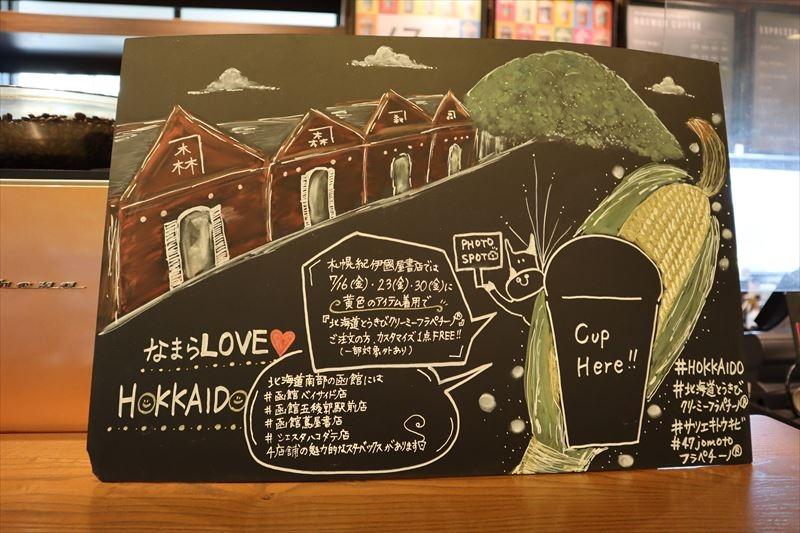 森
森
森
なまらLOVE
HOKKAIDO
PHOTO
SPOT
札幌紀伊國屋書店では
7/16(金)・23(金)・30(金)に
黄色のアイテム着用で
『北海道とうきびクリーミーフラペチーノ®』
ご注文の方、カスタマイズ1点FREE!!
(一部対象外あり)
北海道南部の函館には
#函館ベイサイド店
#函館五稜郭駅前店
#函館蔦屋書店
#シエスタハコダテ店
4店舗の魅力的なスターバックスがあります
Cup
Here!!
#HOKKAIDO
#北海道とうきび
クリーミーフラペチーノ®
#サッエキトウキビ
#47JIMOTO
フラペチーノ®